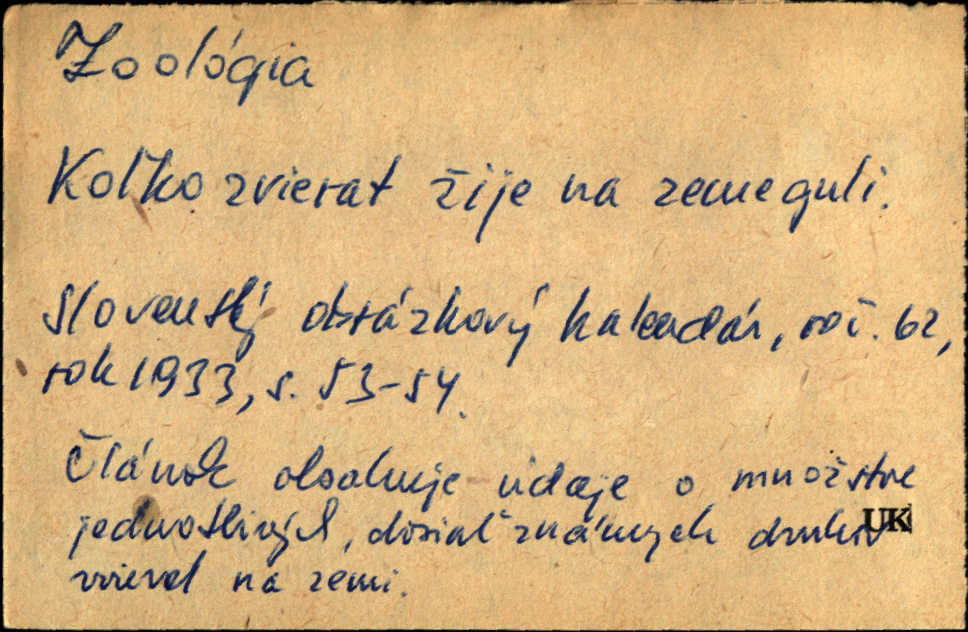 Zoológia
Koľko zvierat žije na zemeguli.
Slovenský obrázkový kalendár, roč. 62,
rok 1933, s. 53-54.
Článok obsahuje údaje o množstve
jednotlivých, dosiaľ známych druhov UK
zvierat na zemi.